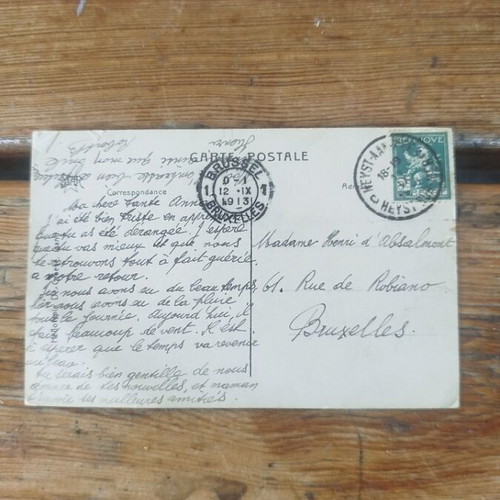 CARTE POSTALE
Correspondance
BRUSSEL
1 1
12 - IX
1913
BRUXELLES
HEYST-AAN
HEYST
Ma chère tante Anna
J'ai été bien triste en
que tu as été dérangée. J'espère
que tu vas mieux et que nous
te retrouverons tout à fait guérie
à notre retour.
Ici nous avons eu du beau temps,
avons eu de la pluie
toute la journée. Aujourd'hui, il
fait beaucoup de vent. Il est
à espérer que le temps va revenir
beau.
Tu serais bien gentille de nous
de tes nouvelles, et maman
envoie ses meilleures amitiés.
Madame Henri d'Absalmont
61. Rue de Robiano
Bruxelles.